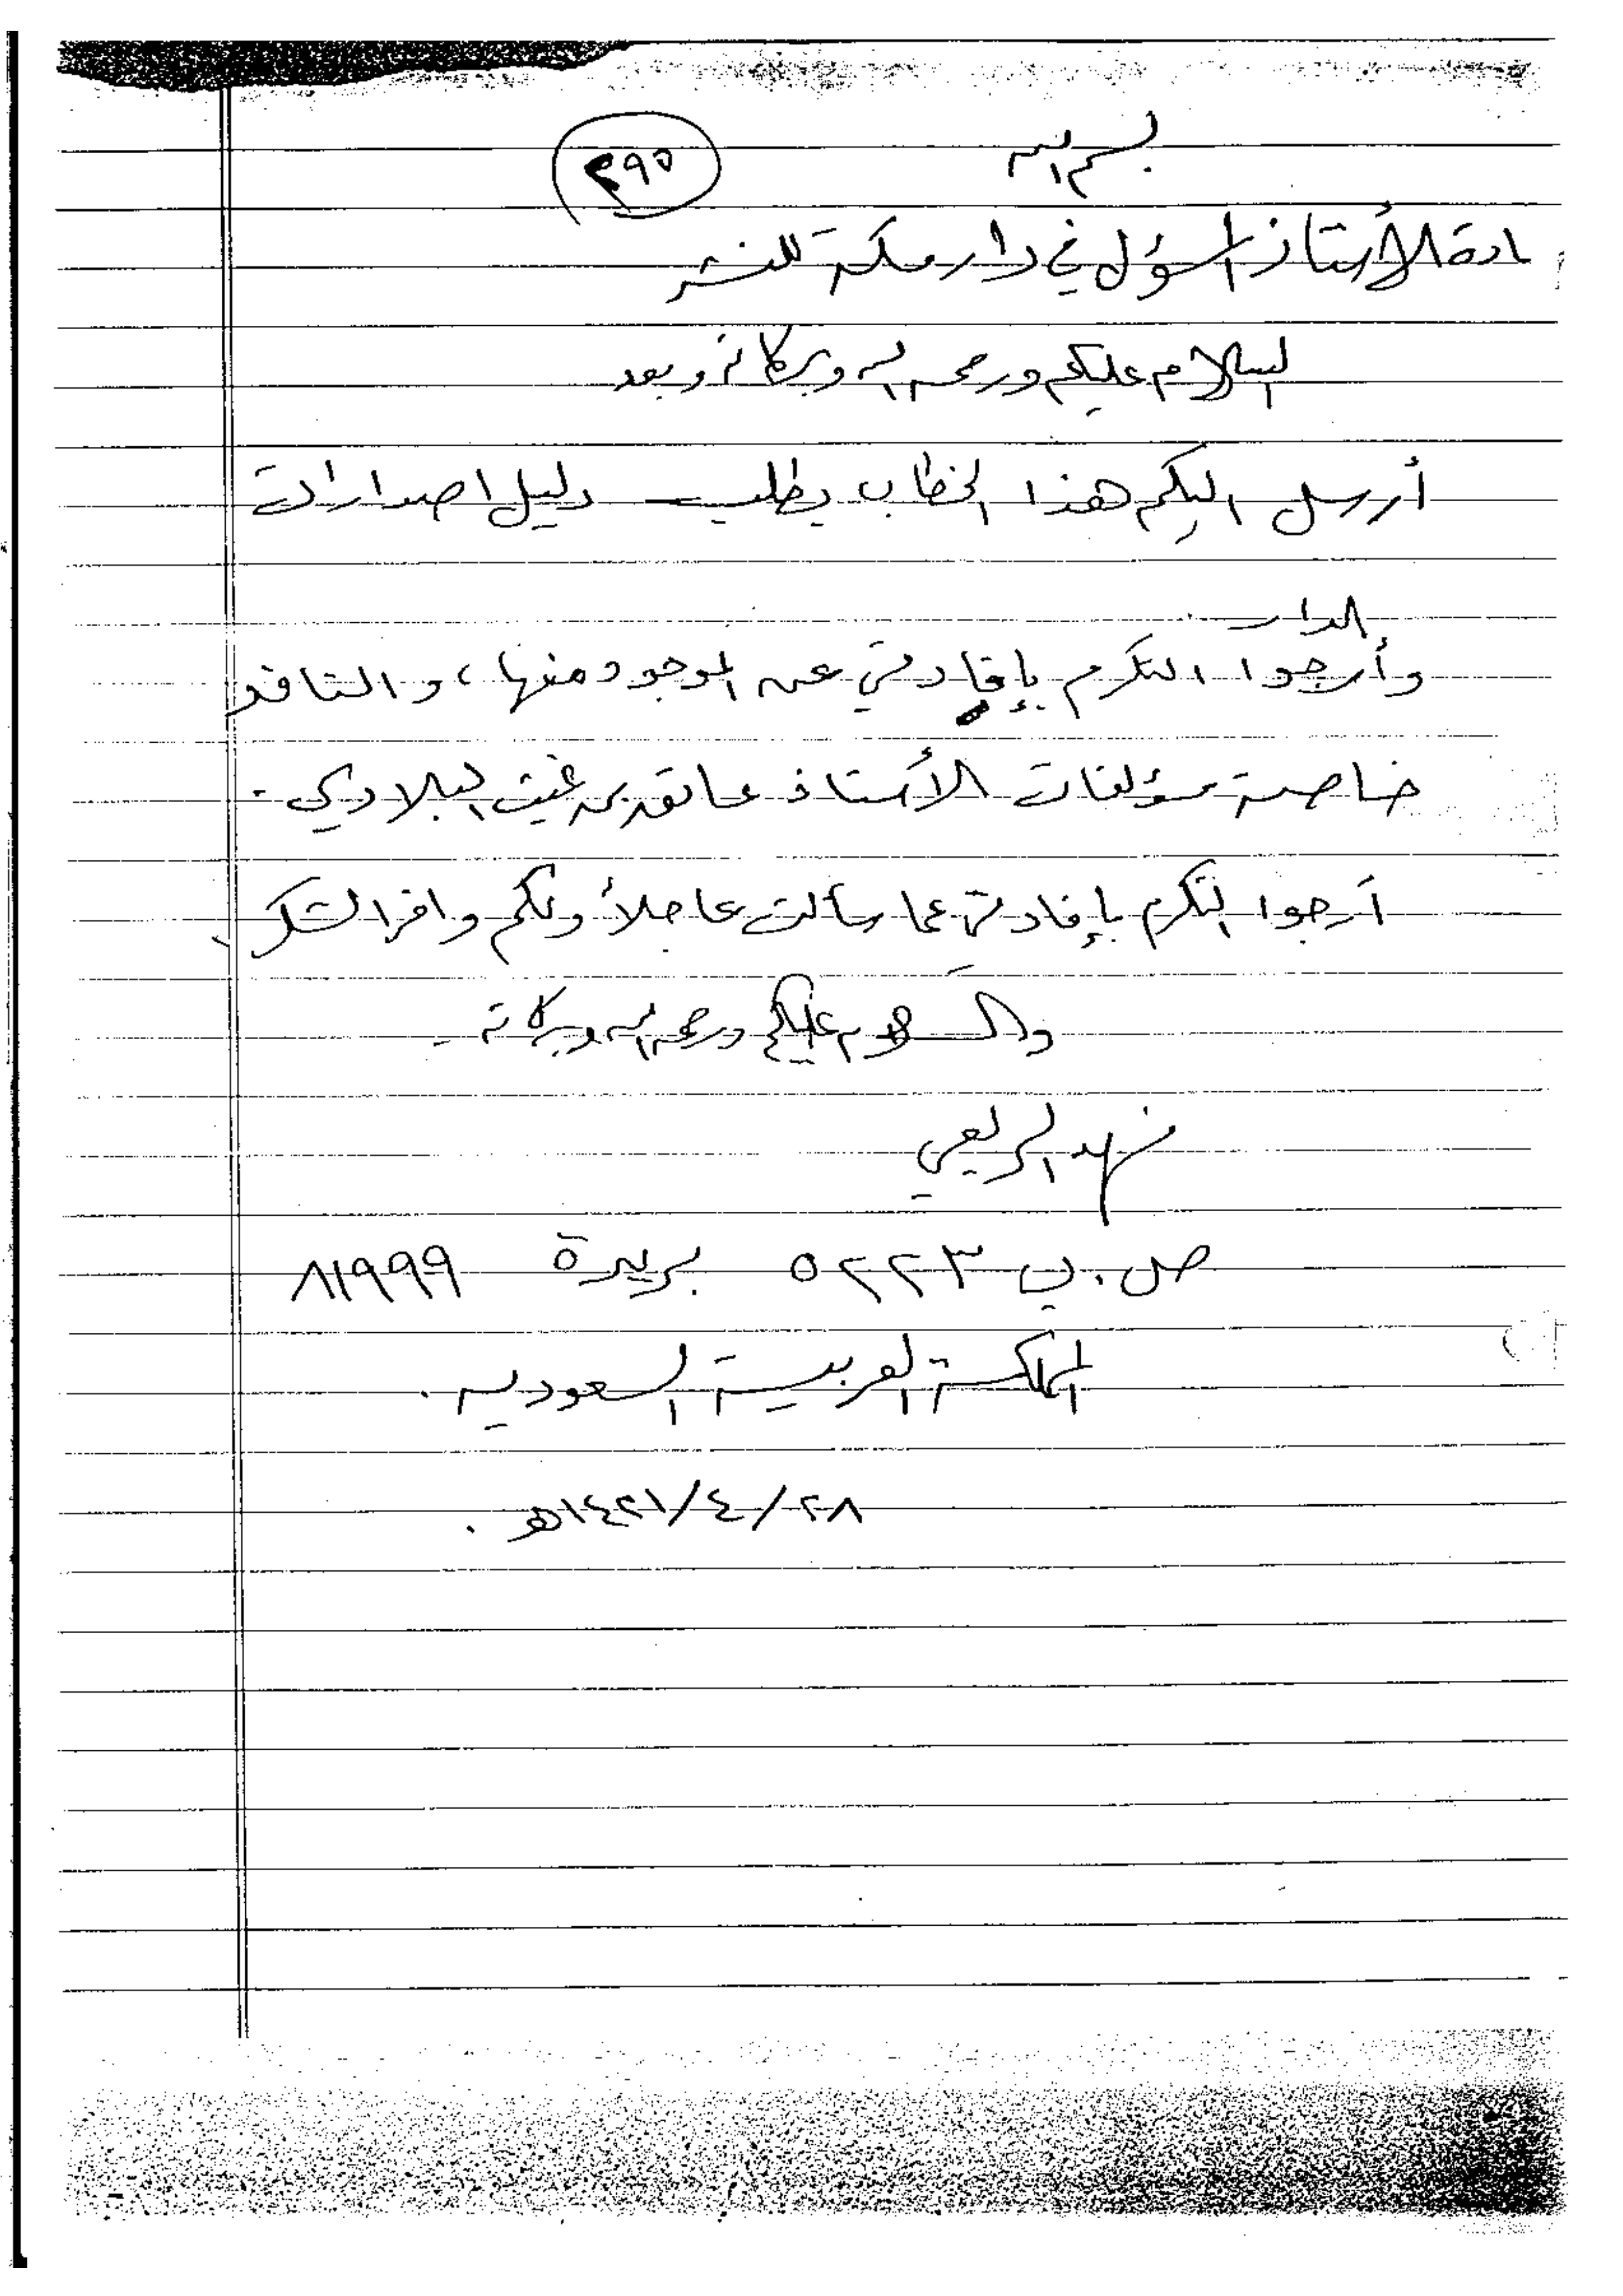 بسم الله
٢٩٥
سعادة الأستاذ المسؤل في دار مكة للنشر
السلام عليكم ورحمة الله وبركاته وبعد
أرسل اليكم هذا الخطاب بطلب دليل اصدارات
الدار
وأرجوا التكرم بإفادتي عن الموجود منها، والنافد
خاصة مؤلفات الأستاذ عاتق بن غيث البلادي.
أرجوا التكرم بإفادتي عما سألت عاجلاً ولكم وافر الشكر
والسلام عليكم ورحمة الله وبركاته
فهد الربعي
ص.ب ٥٢٢٣ بريدة ٨١٩٩٩
المملكة العربية السعودية.
٢٨/٤/١٤٢١هـ.